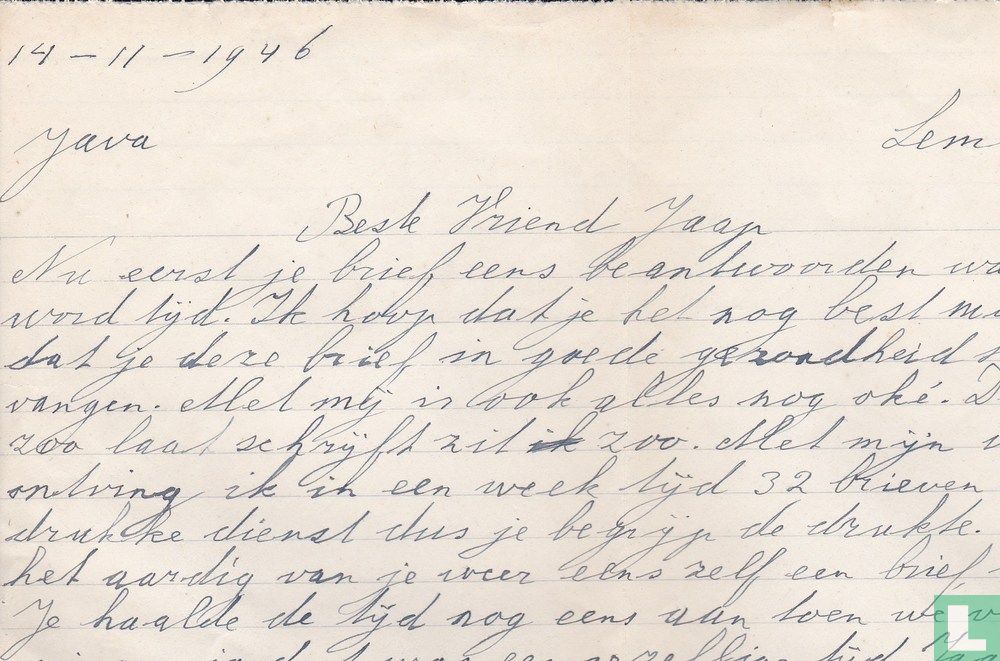 14 - 11 - 1946
Java Lem
Beste Vriend Jaap
Nu eerst je brief eens beantwoorden wa
word tijd. Ik hoop dat je het nog best m
dat je deze brief in goede gezondheid
vangen. Met mij is ook alles nog oké. D
zoo laat schrijft zit ik zoo. Met mijn v
ontving ik in een week tijd 32 brieven
drukke dienst dus je begrijp de drukte.
het aardig van je weer eens zelf een brief
Je haalde de tijd nog eens aan toen we v
was een gezellige tijd
L